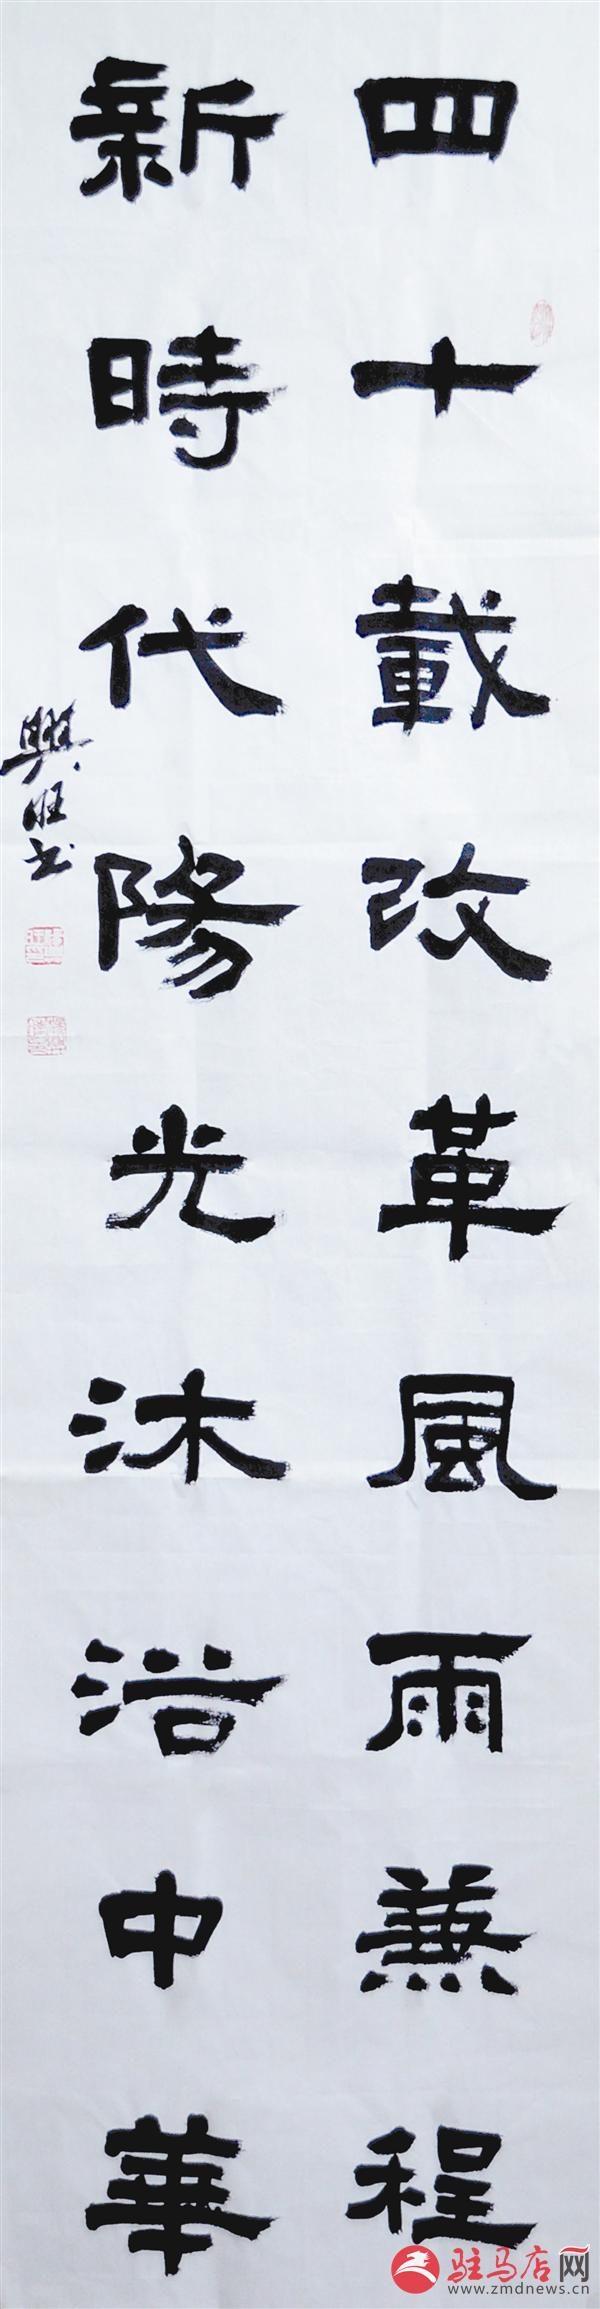 四十載改革風雨兼程
新時代陽光沐浴中華
興旺书
驻马店网
www.zmdnews.cn